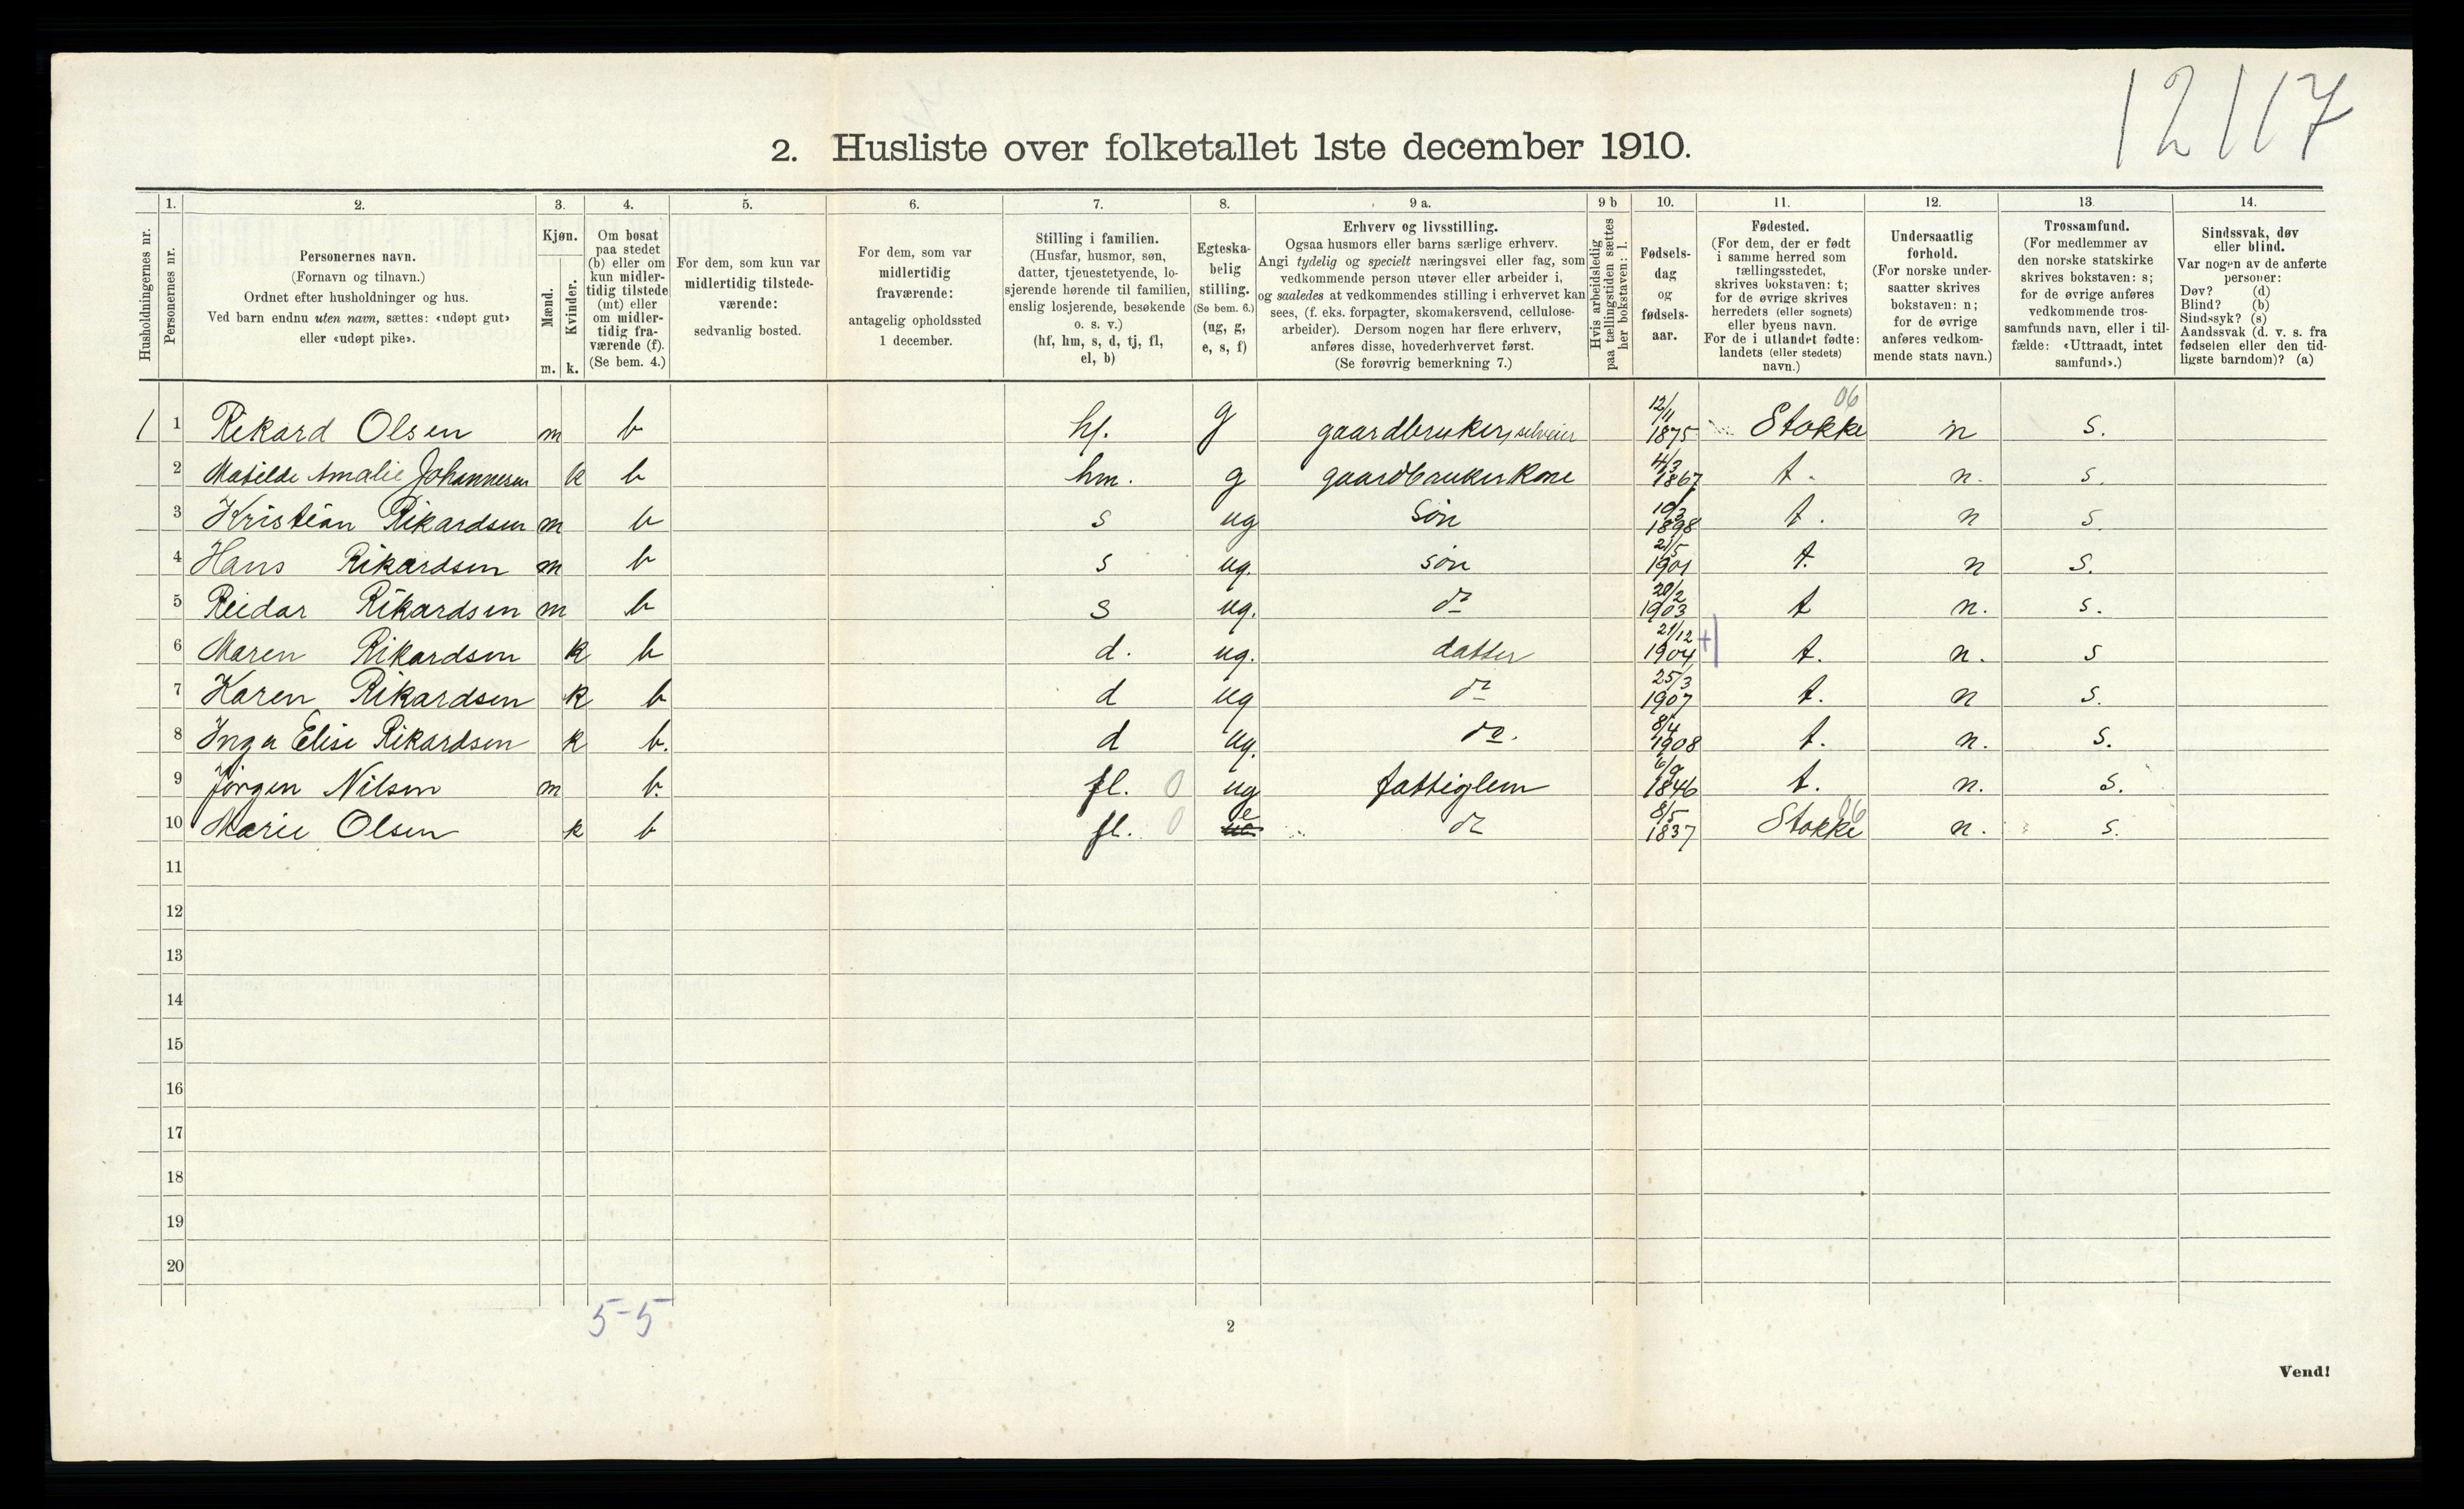 12/17
2. Husliste over folketallet 1ste december 1910.
Husholdningernes nr.
1. Personernes nr.
2. Personernes navn.
(Fornavn og tilnavn.)
Ordnet efter husholdninger og hus.
Ved barn endnu uten navn, sættes: «udøpt gut»
eller «udøpt pike».
3. Kjøn.
Mænd. m.
Kvinder. k.
4. Om bosat
paa stedet
(b) eller om
kun midler-
tidig tilstede
(mt) eller
om midler-
tidig fra-
værende (f).
(Se bem. 4.)
5. For dem, som kun var
midlertidig tilstede-
værende:
sedvanlig bosted.
6. For dem, som var
midlertidig
fraværende:
antagelig opholdssted
1 december.
7. Stilling i familien.
(Husfar, husmor, søn,
datter, tjenestetyende, lo-
sjerende hørende til familien,
enslig losjerende, besøkende
o. s. v.)
(hf, hm, s, d, tj, fl,
el, b)
8. Egteska-
belig
stilling.
(Se bem. 6.)
(ug, g,
e, s, f)
9 a. Erhverv og livsstilling.
Ogsaa husmors eller barns særlige erhverv.
Angi tydelig og specielt næringsvei eller fag, som
vedkommende person utøver eller arbeider i,
og saaledes at vedkommendes stilling i erhvervet kan
sees, (f. eks. forpagter, skomakersvend, cellulose-
arbeider). Dersom nogen har flere erhverv,
anføres disse, hovederhvervet først.
(Se forøvrig bemerkning 7.)
9 b Hvis arbeidsledig
paa tællingstiden sættes
her bokstaven: l.
10. Fødsels-
dag
og
fødsels-
aar.
11. Fødested.
(For dem, der er født
i samme herred som
tællingsstedet,
skrives bokstaven: t;
for de øvrige skrives
herredets (eller sognets)
eller byens navn.
For de i utlandet fødte:
landets (eller stedets)
navn.)
12. Undersaatlig
forhold.
(For norske under-
saatter skrives
bokstaven: n;
for de øvrige
anføres vedkom-
mende stats navn.)
13. Trossamfund.
(For medlemmer av
den norske statskirke
skrives bokstaven: s;
for de øvrige anføres
vedkommende tros-
samfunds navn, eller i til-
fælde: «Uttraadt, intet
samfund».)
14. Sindssvak, døv
eller blind.
Var nogen av de anførte
personer:
Døv? (d)
Blind? (b)
Sindssyk? (s)
Aandssvak (d. v. s. fra
fødselen eller den tid-
ligste barndom)? (a)
1 1 Rikard Olsen m b hf. g gaardbruker, selveier 12/11 1875 Stokke 06 n s.
2 Matilde Amalie Johannesen k b hm. g gaardbrukerkone 4/3 1867 t. n. s.
3 Kristian Rikardsen m b s ug søn 10/3 1898 t. n s.
4 Hans Rikardsen m b s ug. søn 21/5 1901 t. n s.
5 Reidar Rikardsen m b s ug. do 20/2 1903 t n. s.
6 Maren Rikardsen k b d. ug. datter 21/12 1904 t. n. s
7 Karen Rikardsen k b d ug do 25/3 1907 t. n s.
8 Inga Elise Rikardsen k b. d ug. do. 8/4 1908 t. n. s.
9 Jörgen Nilsen m b. fl. 0 ug fattiglem 6/9 1846 t. n. s.
10 Marie Olsen k b fl. 0 e do 8/5 1837 Stokke 06 n. s.
11
12
13
14
15
16
17
18
19
20
5-5
2
Vend!